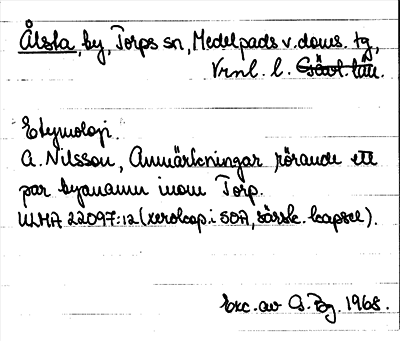 Ålsta, by, Torps sn, Medelpads v. doms. tg,
Vrnl. l. Gävl. län.
Etymologi.
A. Nilsson, Anmärkningar rörande ett
par bynamn inom Torp.
ULMA 22097:12 (xerokop. i SOA, särsk. kapsel).
Exc. av G. Bg. 1968.